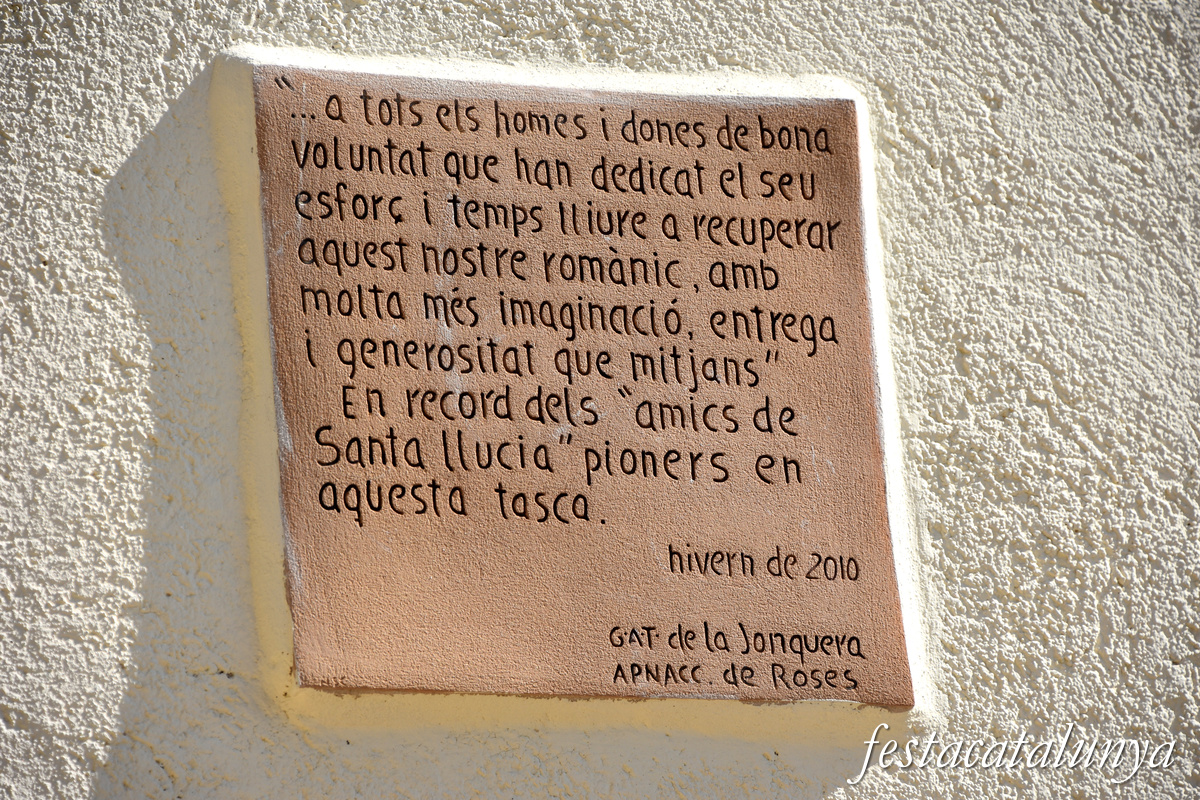 “...a tots els homes i dones de bona
voluntat que han dedicat el seu
esforç i temps lliure a recuperar
aquest nostre romànic, amb
molta més imaginació, entrega
i generositat que mitjans”
En record dels “amics de
Santa llucia” pioners en
aquesta tasca.
hivern de 2010
G·AT· de la Jonquera
APNACC. de Roses
festacatalunya